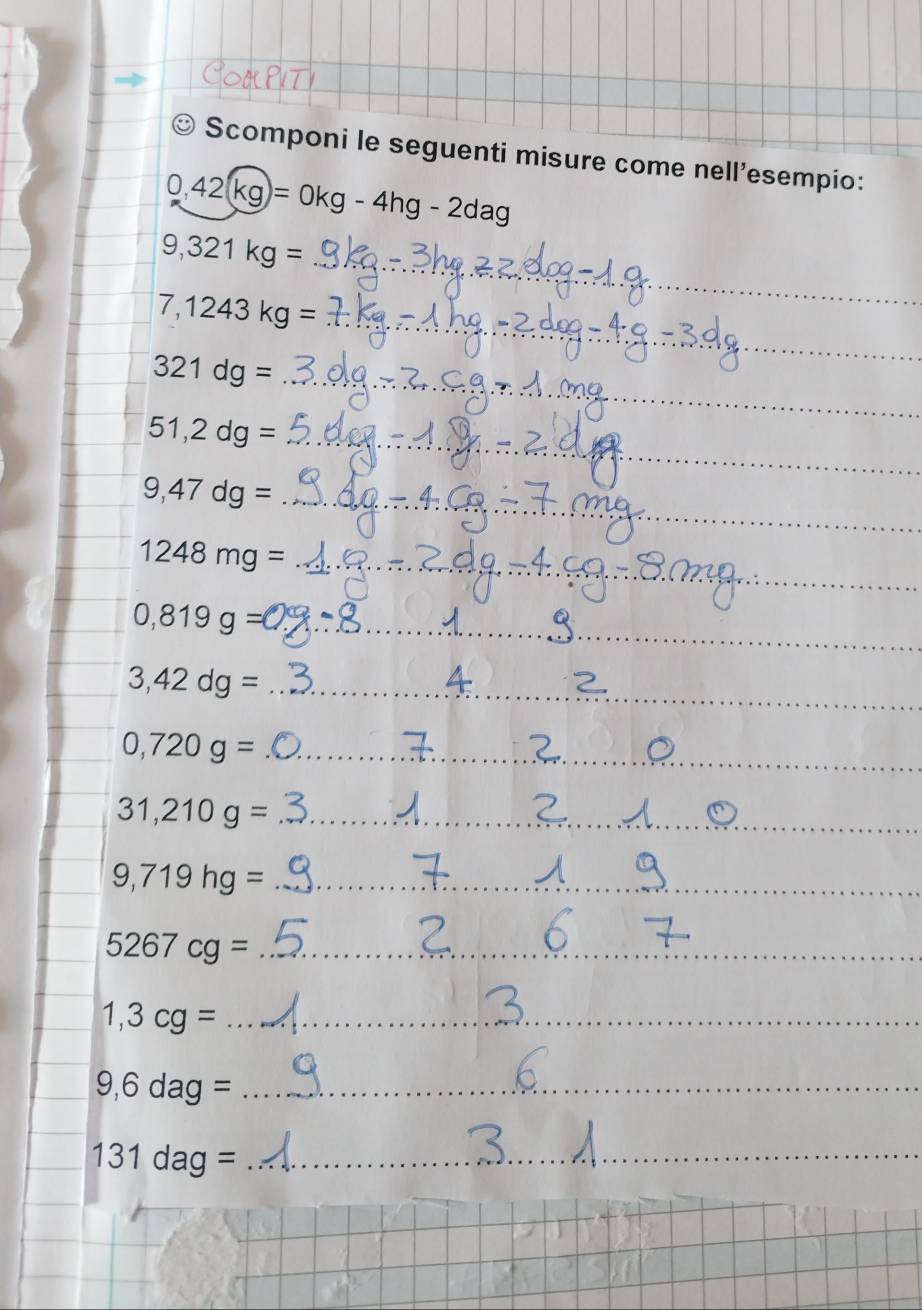 COMPITI
Scomponi le seguenti misure come nell'esempio:
0,42 kg = 0kg - 4hg - 2dag
9,321 kg = 9kg - 3hg = 2 dag - 1 g
7,1243 kg = 7 kg - 1 hg - 2 dag - 4 g - 3 dg
321 dg = 3 dg - 2 cg - 1 mg
51,2 dg = 5 dag - 1 g - 2 dg
9,47 dg = 9 dg - 4 cg - 7 mg
1248 mg = 1 g - 2 dg - 4 cg - 8 mg
0,819 g = 0g - 8 1 9
3,42 dg = 3 4 2
0,720 g = 0 7 2 0
31,210 g = 3 1 2 1 0
9,719 hg = 9 7 1 9
5267 cg = 5 2 6 7
1,3 cg = 1 3
9,6 dag = 9 6
131 dag = 1 3 1